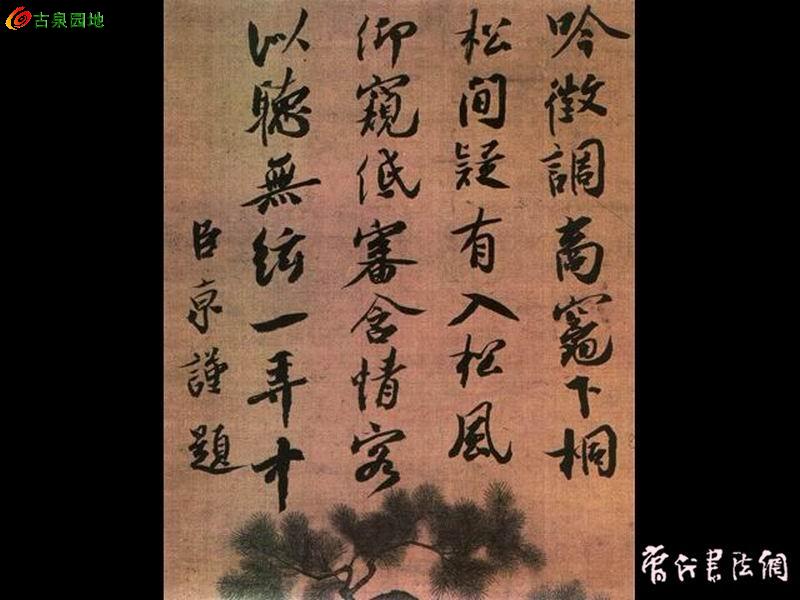 古泉园地
吟徵調商竈下桐
松間疑有入松風
仰窺低審含情客
以聽無絃一弄中
臣京謹題